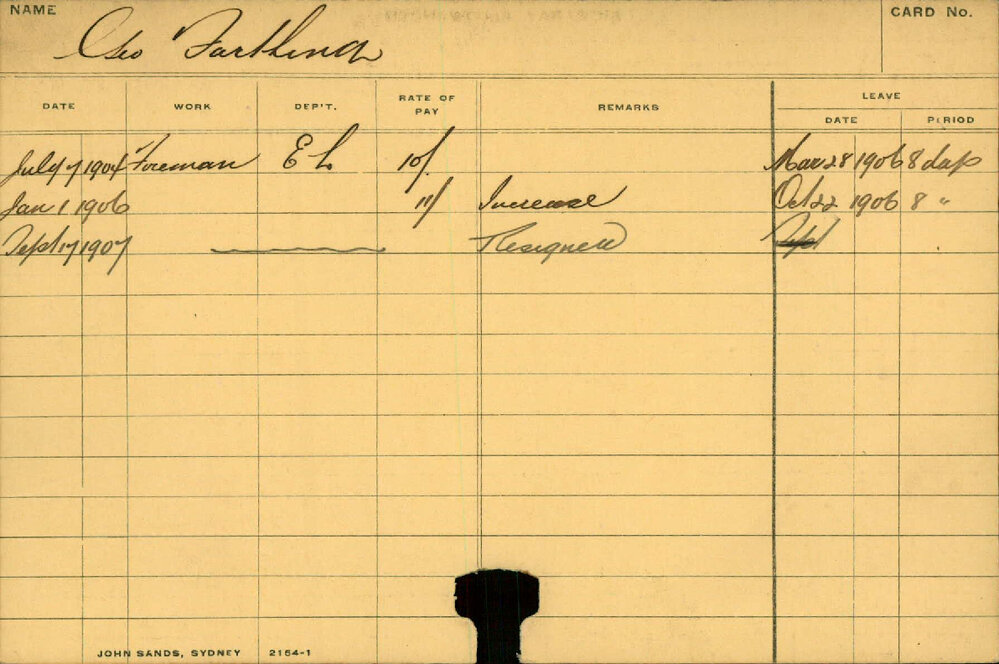 NAME
Geo Farthing
CARD No.
DATE WORK DEP'T. RATE OF PAY REMARKS LEAVE
DATE PERIOD
July 7 1904 Foreman E L 10/ Mar 28 1906 8 days
Jan 1 1906 11/ Increase Oct 22 1906 8 "
Sept 17 1907 Resigned Sept
JOHN SANDS, SYDNEY 2164-1